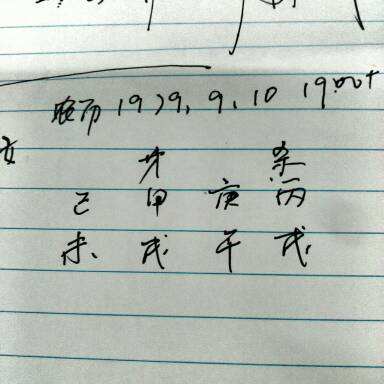 农历 1979, 9, 10 1900+
女
才 杀
己 甲 庚 丙
未 戌 午 戌